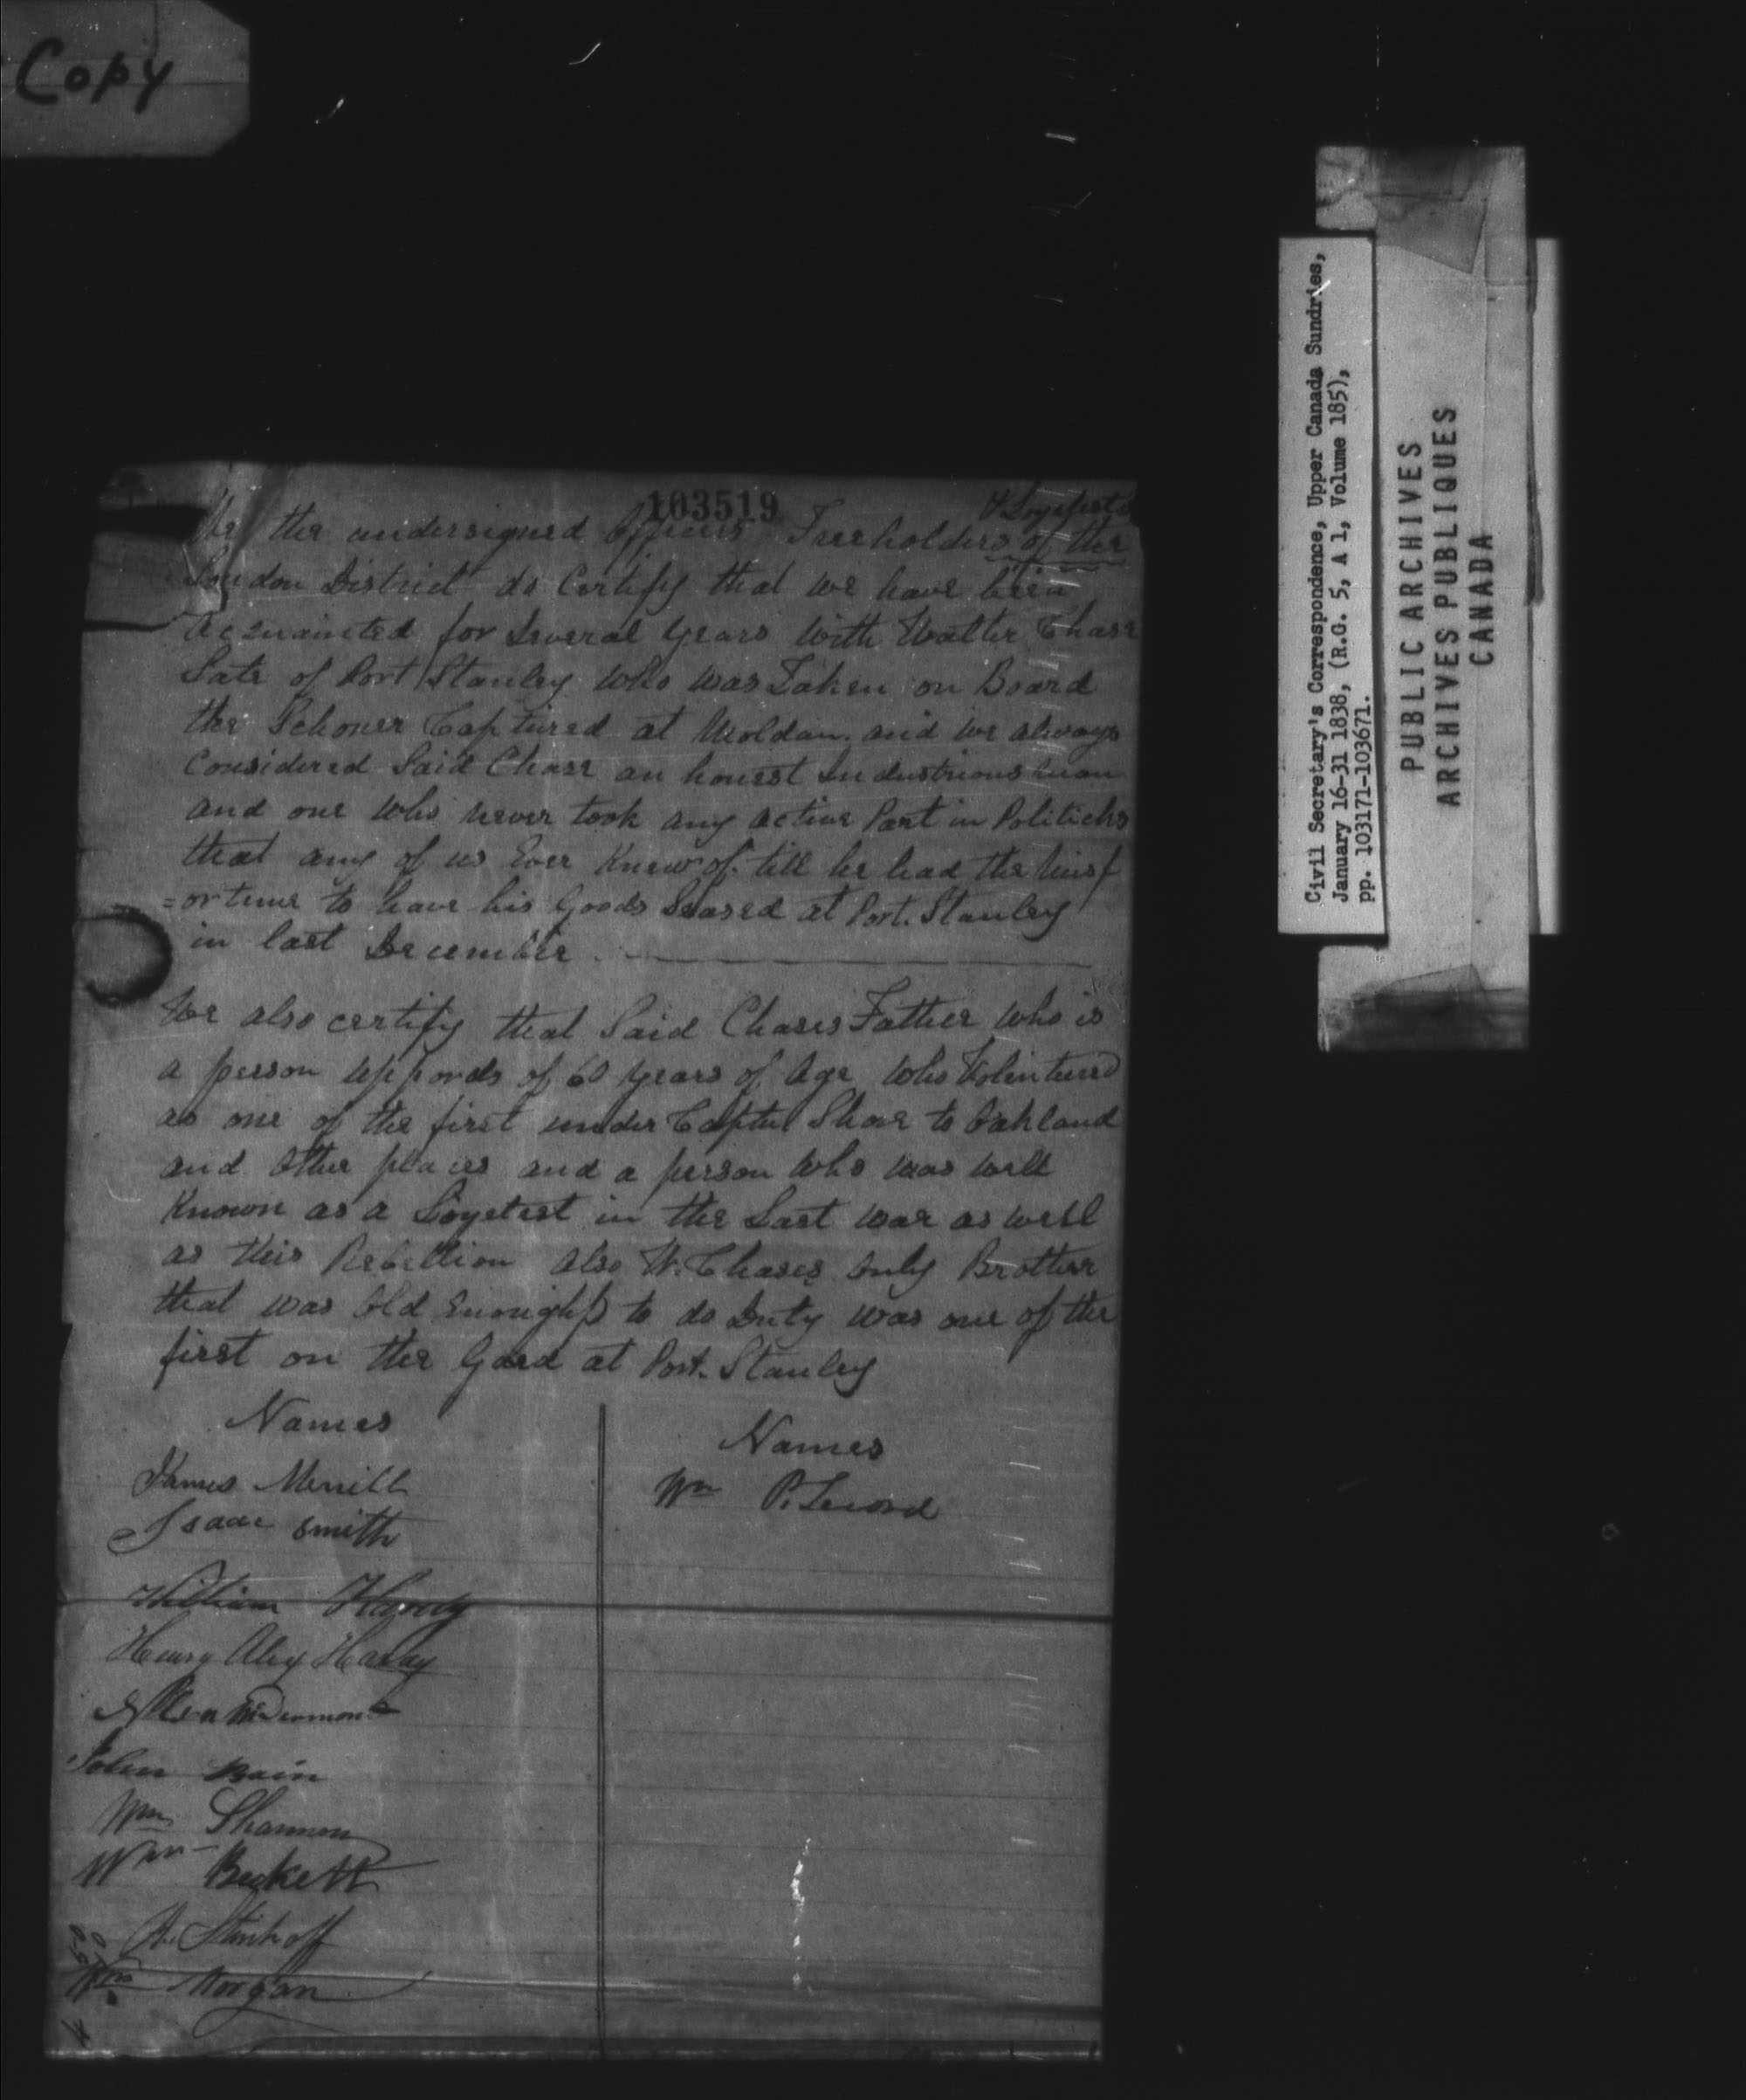 Copy
103519
& Loyelests
We the undersigned Officers Freeholders of the
London District do Certify that we have been
acquainted for Several Years With Walter Chase
Late of Port Stanley Who was Taken on Board
the Schoner Captured at Moldan. and we always
Considered Said Chase an honest Industrious man
and one Who never took any active Part in Politicks
that any of us Ever Knew of. till he had the misf
=ortune to have his Goods Seased at Port. Stanley
in last December
We also certify that Said Chases Father Who is
a person uppords of 60 Years of Age Who Volintured
as one of the first under Captn Shore to Oakland
and Other places and a person Who was well
Known as a Loyelest in the Last War as well
as this Rebellion also W. Chases Only Brother
that was Old Enough to do Duty was one of the
first on the Gard at Port. Stanley
Names
James Merrill
Isaac Smith
William Hardy
Henry Alex Harby
McDermond
John Bain
Wm Shannon
Wm Beckett
A. Stinhoff
Wm Morgan
Names
Wm P. Secord
Civil Secretary's Correspondence, Upper Canada Sundries,
January 16-31 1838, (R.G. 5, A 1, Volume 185),
pp. 103171-103671.
PUBLIC ARCHIVES
ARCHIVES PUBLIQUES
CANADA